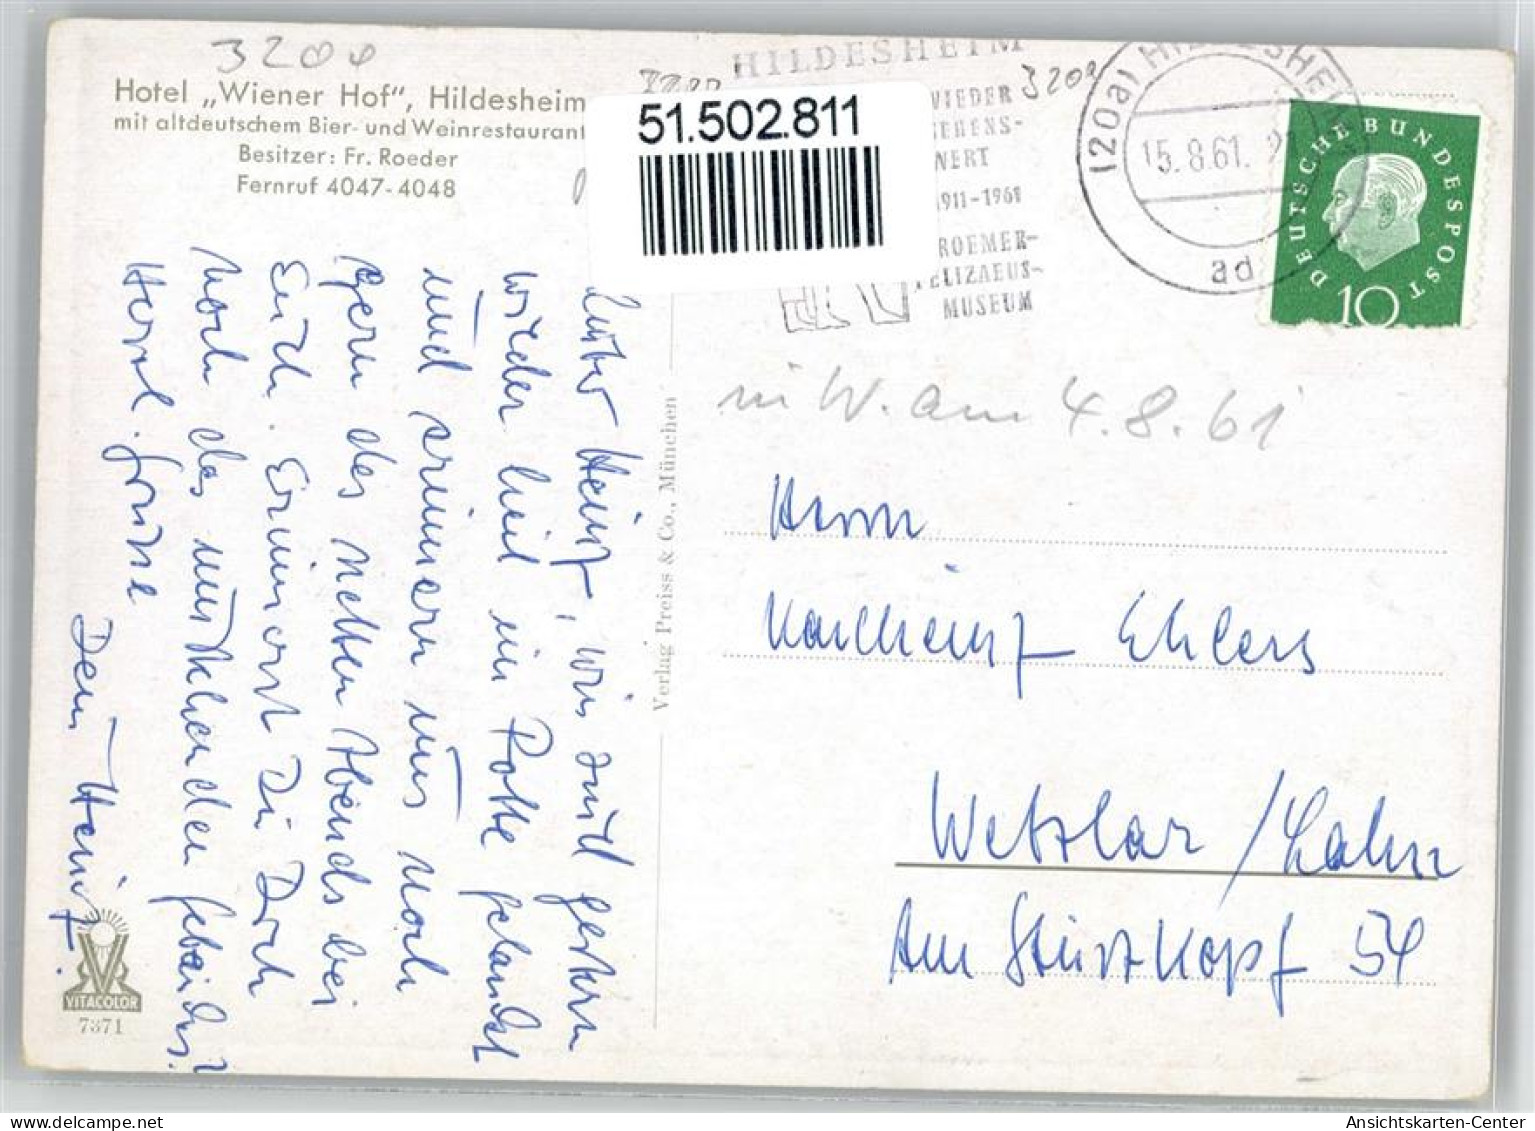 3200
Hotel „Wiener Hof", Hildesheim
mit altdeutschem Bier- und Weinrestaurant
Besitzer: Fr. Roeder
Fernruf 4047-4048
51.502.811
HILDESHEIM
3200
WIEDER
SEHENS-
WERT
1911-1961
ROEMER-
PELIZAEUS-
MUSEUM
(20a) HILDESHEIM
15.8.61.
ad
DEUTSCHE BUNDESPOST
10
in W. am 4.8.61
Lieber Heinz, wir sind gestern
wieder heil im Potte gelandet
und erinnern uns noch
gern des netten Abends bei
Euch. Erinnerst Du Dich
noch des
Herzl. Grüße
Dein Heinz.
VITACOLOR
7371
Verlag Preiss & Co., München
Herrn
Karlheinz Ehlers
Wetzlar/Lahn
Am Sturzkopf 54
Ansichtskarten-Center